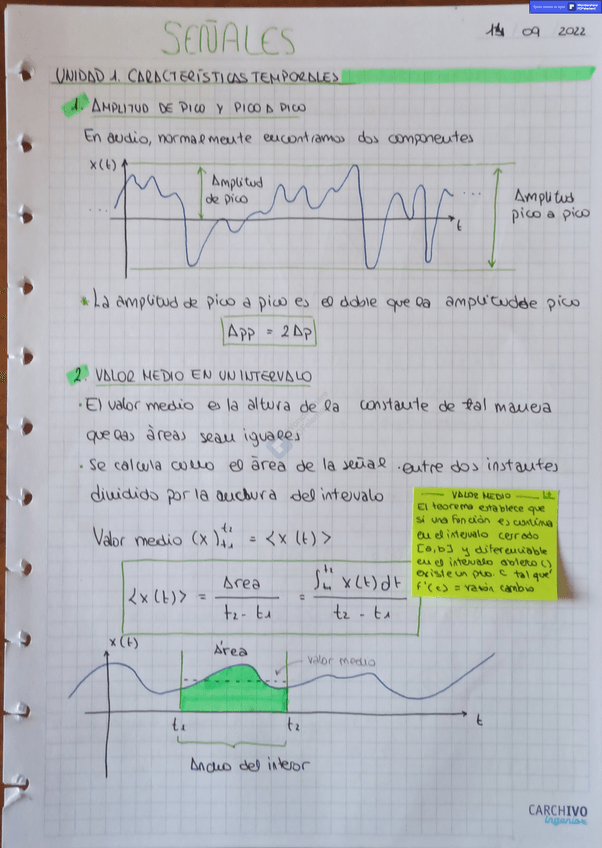 SEÑALES
14 09 2022
UNIDAD 1. CARACTERÍSTICAS TEMPORALES
1. AMPLITUD DE PICO Y PICO A PICO
En audio, normalmente encontramos dos componentes
x(t)
Amplitud
de pico
...
...
t
Amplitud
pico a pico
* La amplitud de pico a pico es el doble que la amplitud de pico
App = 2Ap
2. VALOR MEDIO EN UN INTERVALO
· El valor medio es la altura de la constante de tal manera
que las áreas sean iguales
· Se calcula como el área de la señal entre dos instantes
dividido por la anchura del intervalo
VALOR MEDIO
El teorema establece que
si una función es continua
en el intervalo cerrado
[a,b] y diferenciable
en el intervalo abierto ()
existe un pto. C tal que
f'(c) = razón cambio
Valor medio (x)
t2
t1
= <x(t)>
<x(t)> = Área / t2 - t1 = ∫ x(t) dt / t2 - t1
x(t)
Área
valor medio
t1
t2
t
Ancho del interor
CARCHIVO
ingenios